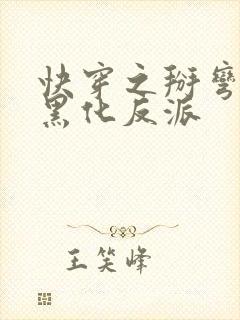 快穿之掰弯
黑化反派
王笑峰